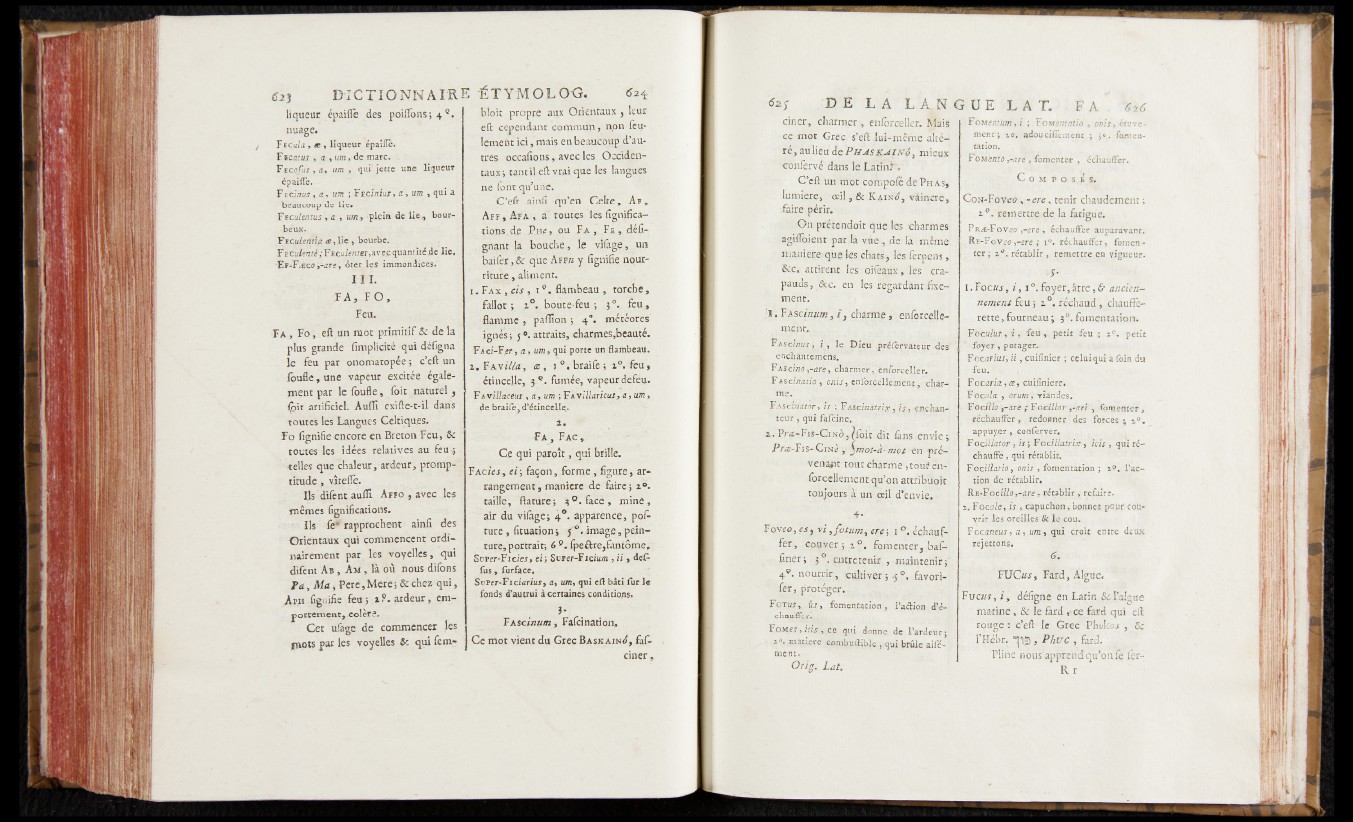 623 DICTIONNAIRE ÉTYMOLOG. 624
liqueur épaiſſe des poiſſons; 4°.
nuage.
FEcula, æ, liqueur épaiſſe.
FEcatus, a, um, de marc.
FEcoſus, a, um, qui jette une liqueur
épaiſſe.
FEcinus, a, um; FEcinius, a, um, qui a
beaucoup de lie.
FEculentus, a, um, plein de lie, bour-
beux.
FEculentia æ, lie, bourbe.
FEculenté; FEculenter, avec quantité de lie.
EF-FÆCO,-are, ôter les immondices.
III.
FA, FO,
Feu.
FA, Fo, eſt un mot primitif & de la
plus grande ſimplicité qui déſigna
le feu par onomatopée; c'eſt un
ſouffle, une vapeur excitée égale-
ment par le ſouffle, ſoit naturel,
ſoit artificiel. Auſſi exiſte-t-il dans
toutes les Langues Celtiques.
Fo ſignifie encore en Breton Feu, &
toutes les idées relatives au feu;
telles que chaleur, ardeur, promp-
titude, vîteſſe.
Ils diſent auſſi AFFO, avec les
mêmes ſignifications.
Ils ſe rapprochent ainſi des
Orientaux qui commencent ordi-
nairement par les voyelles, qui
diſent AB, AM, là où nous diſons
Pa, Ma, Pere, Mere; & chez qui,
APH ſignifie feu; 2°. ardeur, em-
portement, colère.
Cet uſage de commencer les
mots par les voyelles & qui ſem-
bloit propre aux Orientaux, leur
eſt cependant commun, non ſeu-
lement ici, mais en beaucoup d'au-
tres occaſions, avec les Occiden-
taux; tant il eſt vrai que les langues
ne ſont qu'une.
C'eſt ainſi qu'en Celte, AF,
AFF, AFA, a toutes les ſignifica-
tions de PHE, ou FA, FE, déſi-
gnant la bouche, le viſage, un
baiſer, & que AFFN y ſignifie nour-
riture, aliment.
1. FAX, cis, 1°. flambeau, torche,
fallot; 2°. boute-feu; 3°. feu,
flamme, paſſion; 4°. météores
ignés; 5°. attraits, charmes, beauté.
FACI-FER, a, um, qui porte un flambeau.
2. FAVilla, æ, 1°. braiſe; 2°. feu,
étincelle, 3°. fumée, vapeur de feu.
FAVillaceus, a, um; FAVillaticus, a, um,
de braiſe, d'étincelle.
2.
FA, FAC,
Ce qui paroît, qui brille.
FACies, ei; façon, forme, figure, ar-
rangement, maniere de faire; 2°.
taille, ſtature; 3°. face, mine,
air du viſage; 4°. apparence, poſ-
ture, ſituation; 5°. image, pein-
ture, portrait; 6°. ſpectre, fantôme.
SUPER-FICies, ei; SUPER-FICium, ii, deſ-
ſus, ſurface.
SUPER-FICiarius, a, um, qui eſt bâti ſur le
fonds d'autrui à certaines conditions.
3.
FASCinum, Faſcination.
Ce mot vient du Grec BASKAINÓ, faſ-
ciner,
625 DE LA LANGUE LAT. FA 626
ciner, charmer, enſorceller. Mais
ce mot Grec s'eſt lui-même alté-
ré, au lieu de PHASKAINÓ, mieux
conſervé dans le Latin.
C'eſt un mot compoſé de PHAS,
lumiere, œil, & KAINÓ, vaincre,
faire périr.
On prétendoit que les charmes
agiſſoient par la vue, de la même
maniere que les chats, les ſerpens,
&c. attirent les oiſeaux, les cra-
pauds, &c. en les regardant fixe-
ment.
1. FASCinum, i, charme, enſorcelle-
ment.
FASCinus, i, le Dieu préſervateur des
enchantemens.
FASCino,-are, charmer, enſorceller.
FASCinatio, onis, enſorcellement, char-
me.
FASCinator, is; FASCinatrix, is, enchan-
teur, qui faſcine.
2. Præ-FIS-CINÒ, }ſoit dit ſans envie;
Præ-FIS-CINÈ, }mot-à-mot en pré-
venant tout charme, tout en-
ſorcellement qu'on attribuoit
toujours à un œil d'envie.
4.
FOveo, es, vi, fotum, ere; 1°. échauf-
fer, couver; 2°. fomenter, baſ-
ſiner; 3°. entretenir, maintenir;
4°. nourrir, cultiver; 5°. favori-
ſer, protéger.
FOTUS, ûs, fomentation, l'action d'é-
chauffer.
FOMES, itis, ce qui donne de l'ardeur;
2°. matiere combuſtible, qui brûle aiſé-
ment.
Orig. Lat.
FOMEntum, i; FOMEntatio, onis, étuve-
ment; 2°. adouciſſement; 3°. fomen-
tation.
FOMEnto,-are, fomenter, échauffer.
COMPOSÉS.
CON-FOveo, -ere, tenir chaudement;
2°. remettre de la fatigue.
PRÆ-FOveo,-ere, échauffer auparavant.
RE-FOveo,-ere; 1°. réchauffer, fomen-
ter; 2°. rétablir, remettre en vigueur.
5.
1. FOCus, i, 1°. foyer, âtre, & ancien-
nement feu; 2°. réchaud, chauffe-
rette, fourneau; 3°. fomentation.
FOCulus, i, feu, petit feu; 2°. petit
foyer, potager.
FOCarius, ii, cuiſinier; celui qui a ſoin du
feu.
FOCaria, æ, cuiſiniere.
FOCula, orum, viandes.
FOCillo,-are; FOCillor,-ari, fomenter,
réchauffer, redonner des forces; 2°.
appuyer, conſerver.
FOCillator, is; FOCillatrix, icis, qui ré-
chauffe, qui rétablit.
FOCillatio, onis, fomentation; 2°. l'ac-
tion de rétablir.
RE-FOCillo,-are, rétablir, refaire.
2. FOCale, is, capuchon, bonnet pour cou-
vrir les oreilles & le cou.
FOCaneus, a, um, qui croît entre deux
rejettons.
6.
FUCus, Fard, Algue.
FUCus, i, déſigne en Latin & l'algue
marine, & le fard, ce fard qui eſt
rouge: c'eſt le Grec Phukos, &
l'Hébr. פוך, PhUC, fard.
Pline nous apprend qu'on ſe ſer-
R r